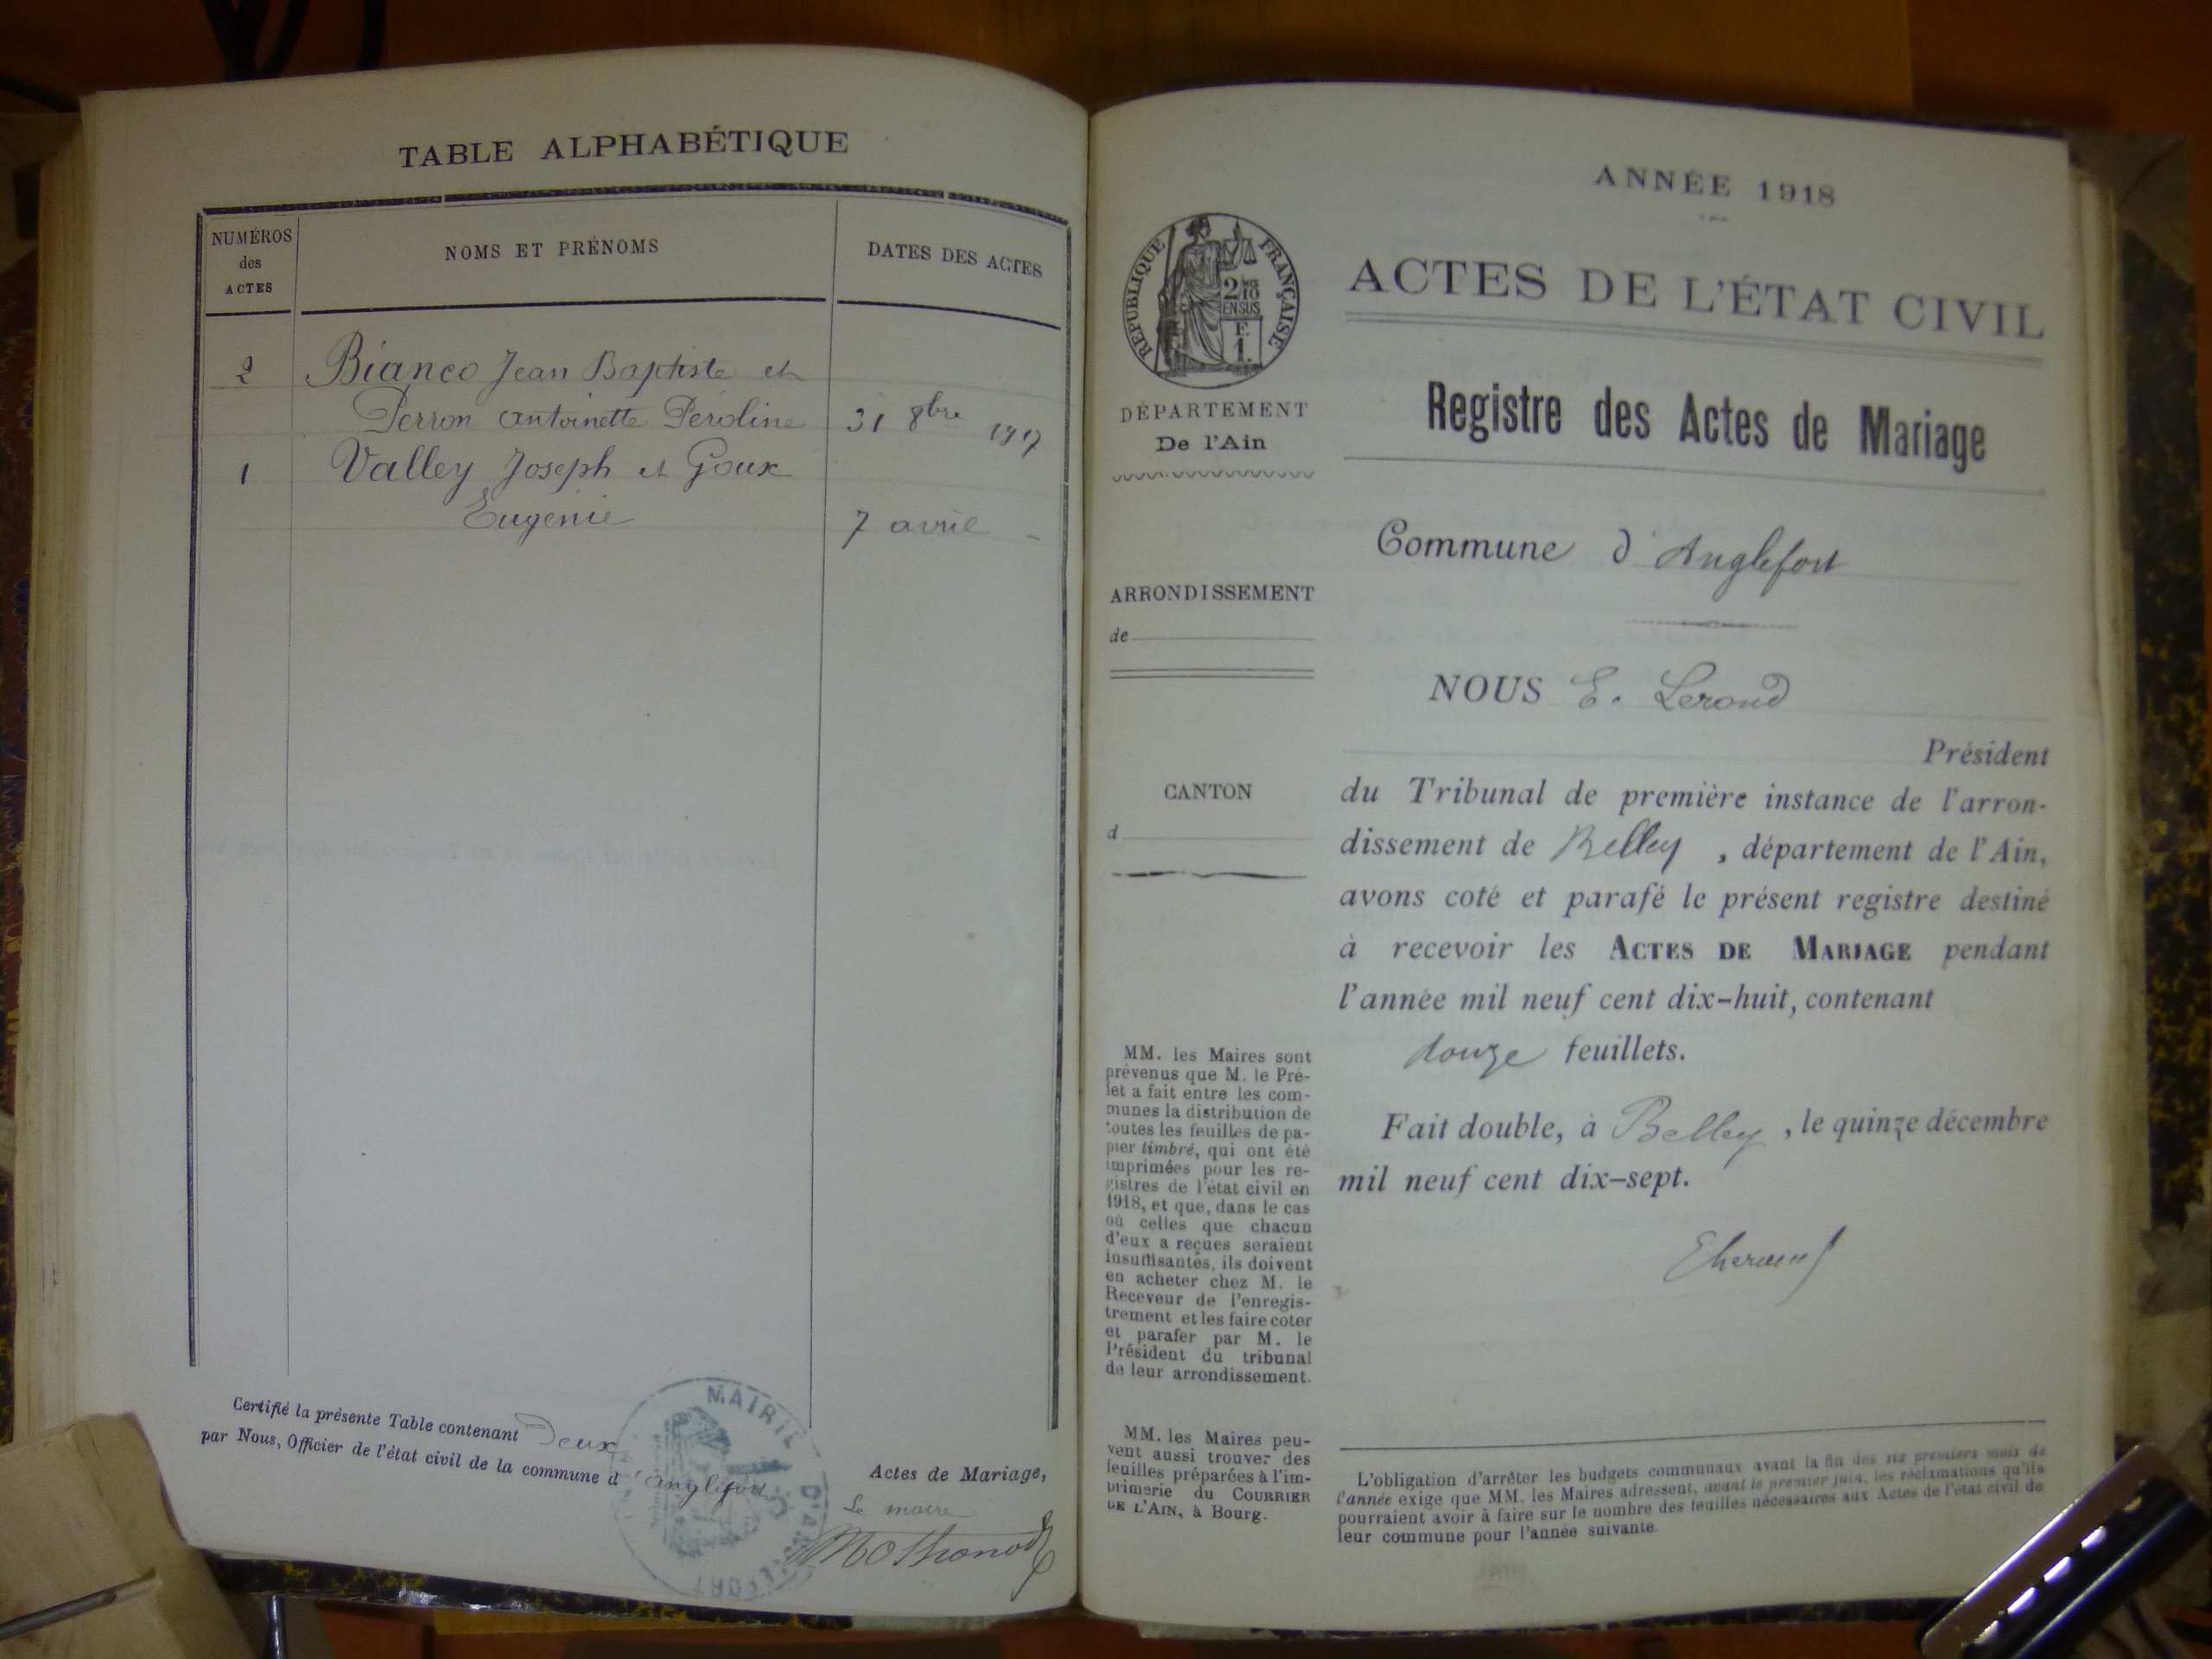 TABLE ALPHABÉTIQUE
NUMÉROS
des
ACTES
NOMS ET PRÉNOMS
DATES DES ACTES
2 Bianco Jean Baptiste et
Perron Antoinette Péroline 31 8bre 1917
1 Valley Joseph et Goux
Eugénie 7 avril -
Certifié la présente Table contenant Deux
par Nous, Officier de l'état civil de la commune d'Anglefort
Actes de Mariage,
Le maire
MAIRIE D'ANGLEFORT
ANNÉE 1918
RÉPUBLIQUE FRANÇAISE
2/10
EN SUS
F.
1.
DÉPARTEMENT
De l'Ain
ARRONDISSEMENT
de
CANTON
d
MM. les Maires sont
prévenus que M. le Pré-
fet a fait entre les com-
munes la distribution de
toutes les feuilles de pa-
pier timbré, qui ont été
imprimées pour les re-
gistres de l'état civil en
1918, et que, dans le cas
où celles que chacun
d'eux a reçues seraient
insuffisantes, ils doivent
en acheter chez M. le
Receveur de l'enregis-
trement et les faire coter
et parafer par M. le
Président du tribunal
de leur arrondissement.
MM. les Maires peu-
vent aussi trouver des
feuilles préparées à l'im-
primerie du COURRIER
DE L'AIN, à Bourg.
ACTES DE L'ÉTAT CIVIL
Registre des Actes de Mariage
Commune d'Anglefort
NOUS E. Lerond
Président
du Tribunal de première instance de l'arron-
dissement de Belley, département de l'Ain,
avons coté et parafé le présent registre destiné
à recevoir les ACTES DE MARIAGE pendant
l'année mil neuf cent dix-huit, contenant
douze feuillets.
Fait double, à Belley, le quinze décembre
mil neuf cent dix-sept.
L'obligation d'arrêter les budgets communaux avant la fin des six premiers mois de
l'année exige que MM. les Maires adressent, avant le premier juin, les réclamations qu'ils
pourraient avoir à faire sur le nombre des feuilles nécessaires aux Actes de l'état civil de
leur commune pour l'année suivante.